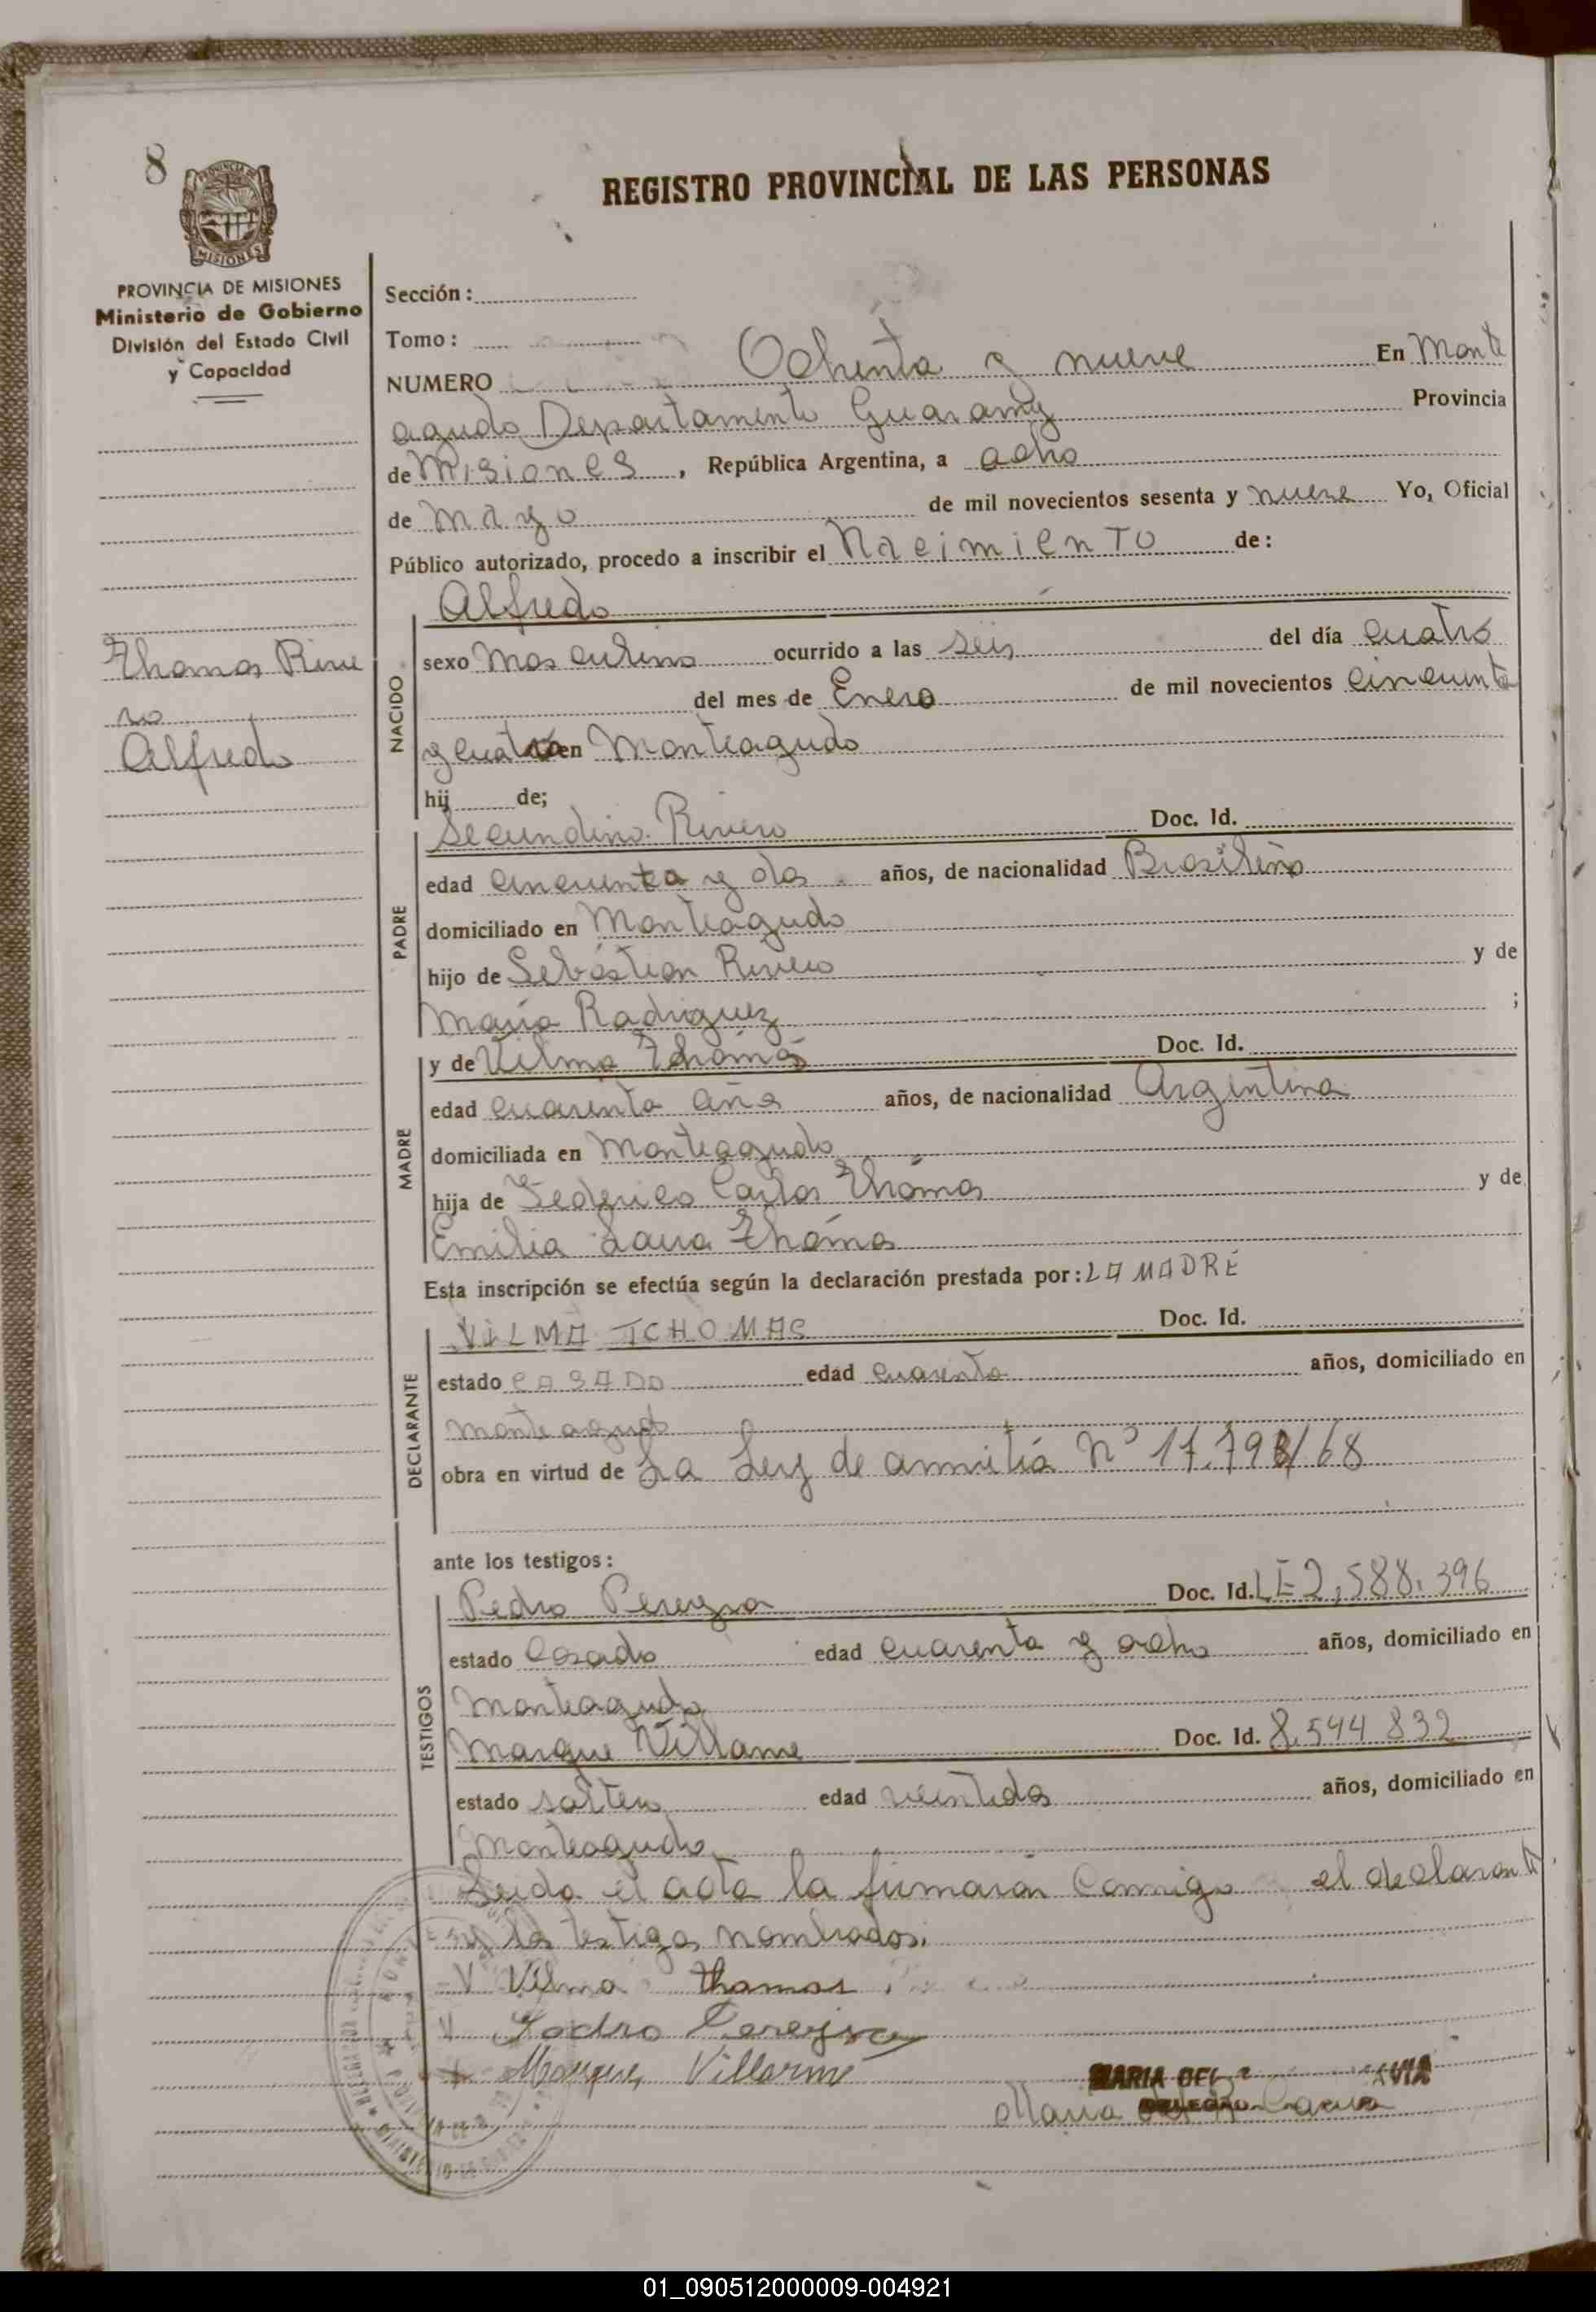 8
REGISTRO PROVINCIAL DE LAS PERSONAS
PROVINCIA DE MISIONES
Ministerio de Gobierno
División del Estado Civil
y Capacidad
Sección :
Tomo :
NUMERO Ochenta y nueve En Monte
agudo Departamento Guarany Provincia
de Misiones , República Argentina, a ocho
de Mayo de mil novecientos sesenta y nueve Yo, Oficial
Público autorizado, procedo a inscribir el Nacimiento de :
Thomas Rive
ro
Alfredo
NACIDO
Alfredo
sexo Masculino ocurrido a las seis del día cuatro
del mes de Enero de mil novecientos cincuenta
y cuatro en Monteagudo
hij de;
PADRE
Secundino Rivero Doc. Id.
edad cincuenta y dos años, de nacionalidad Brasileño
domiciliado en Monteagudo
hijo de Sebastian Rivero y de
Maria Rodriguez ;
MADRE
y de Vilma Thomas Doc. Id.
edad cuarenta años años, de nacionalidad Argentina
domiciliada en Monteagudo
hija de Federico Carlos Thomas y de
Emilia Laura Thomas
Esta inscripción se efectúa según la declaración prestada por : LA MADRE
DECLARANTE
VILMA TCHOMAS Doc. Id.
estado CASADO edad cuarenta años, domiciliado en
monteagudo
obra en virtud de La Ley de amnitia Nº 17.793/68
ante los testigos :
TESTIGOS
Pedro Pereyra Doc. Id. LE 2,588.396
estado Casado edad cuarenta y ocho años, domiciliado en
Monteagudo
Marque Villarme Doc. Id. 8.544 832
estado soltero edad veintidos años, domiciliado en
Monteagudo
Leida el acta la firmaran Conmigo el declarante
y los testigos nombrados.
Vilma thomas
Pedro Pereyra
Marques Villarme
MARIA DEL
Maria del R
01_090512000009-004921